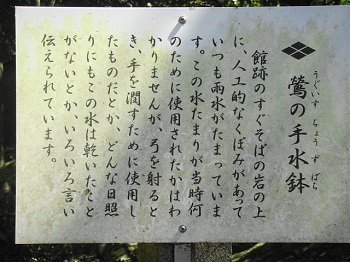 鶯の手水鉢
うぐいす ちょうずばち
館跡のすぐそばの岩の上
に、人工的なくぼみがあって
いつも雨水がたまっていま
す。この水たまりが当時何
のために使用されたかはわ
かりませんが、弓を射ると
き、手を潤すために使用し
たものだとか、どんな日照
りにもこの水は乾いたこと
がないとか、いろいろ言い
伝えられています。